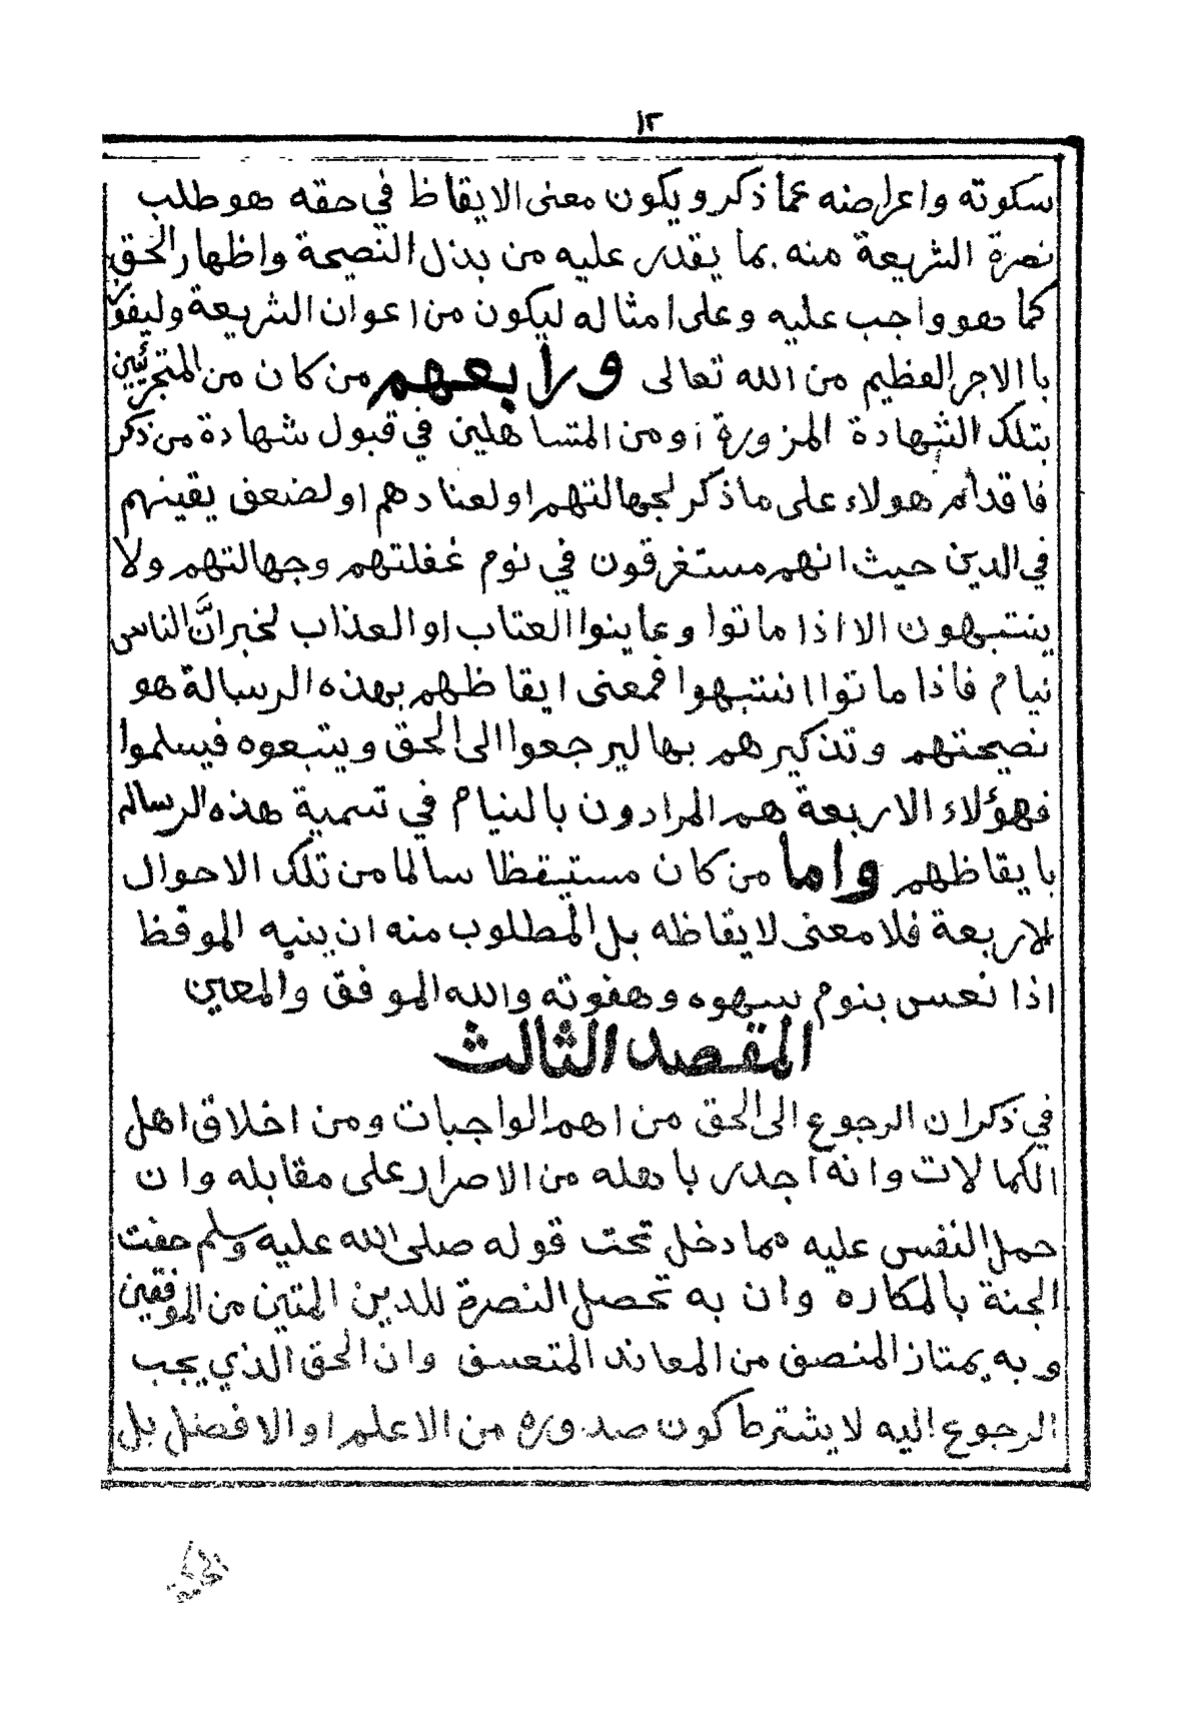 ١٢
سكوته واعراضه عما ذكر ويكون معنى الايقاظ في حقه هو طلب
نصرة الشريعة منه بما يقدر عليه من بذل النصيحة واظهار الحق
كما هو واجب عليه وعلى امثاله ليكون من اعوان الشريعة وليفوز
باالاجر العظيم من الله تعالى ورابعهم من كان من المتجرئين
بتلك الشهادة المزورة او من المتساهلين في قبول شهادة من ذكر
فاقدام هولاء على ما ذكر لجهالتهم او لعنادهم او لضعف يقينهم
في الدين حيث انهم مستغرقون في نوم غفلتهم وجهالتهم ولا
ينتبهون الا اذا ماتوا وعاينوا العتاب او العذاب لخبر انَّ الناس
نيام فاذا ماتوا انتبهوا فمعنى ايقاظهم بهذه الرسالة هو
نصيحتهم وتذكيرهم بها ليرجعوا الى الحق ويتبعوه فيسلموا
فهؤلاء الاربعة هم المرادون بالنيام في تسمية هذه الرسالة
بايقاظهم واما من كان مستيقظا سالما من تلك الاحوال
الاربعة فلا معنى لايقاظه بل المطلوب منه ان ينبه الموقظ
اذا نعس بنوم سهوه وهفوته والله الموفق والمعين
المقصد الثالث
في ذكر ان الرجوع الى الحق من اهم الواجبات ومن اخلاق اهل
الكمالات وانه اجدر باهله من الاصرار على مقابله وان
حمل النفس عليه مما دخل تحت قوله صلى الله عليه وسلم حفت
الجنة بالمكاره وان به تحصل النصرة للدين المتين من الموفقين
وبه يمتاز المنصف من المعاند المتعسف وان الحق الذي يجب
الرجوع اليه لا يشترط كون صدوره من الاعلم او الافضل بل